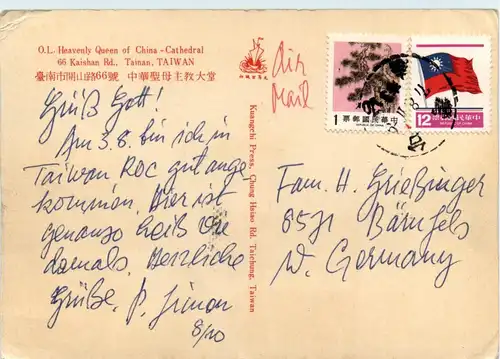 O.L. Heavenly Queen of China - Cathedral
66 Kaishan Rd., Tainan, TAIWAN
臺南市開山路66號 中華聖母主教大堂
Grüß Gott!
Am 3.8. bin ich in
Taiwan ROC gut ange
kommen. Hier ist
genauso heiß wie
damals. Herzliche
Grüße, P. Simon
8/10
Kuangchi Press, Chung Hsiao Rd. Taichung, Taiwan
Air
Mail
1 票郵國民華中
REPUBLIC OF CHINA
12 票郵國民華中
REPUBLIC OF CHINA
Fam. H. Grießinger
8571 Bärnfels
W. Germany